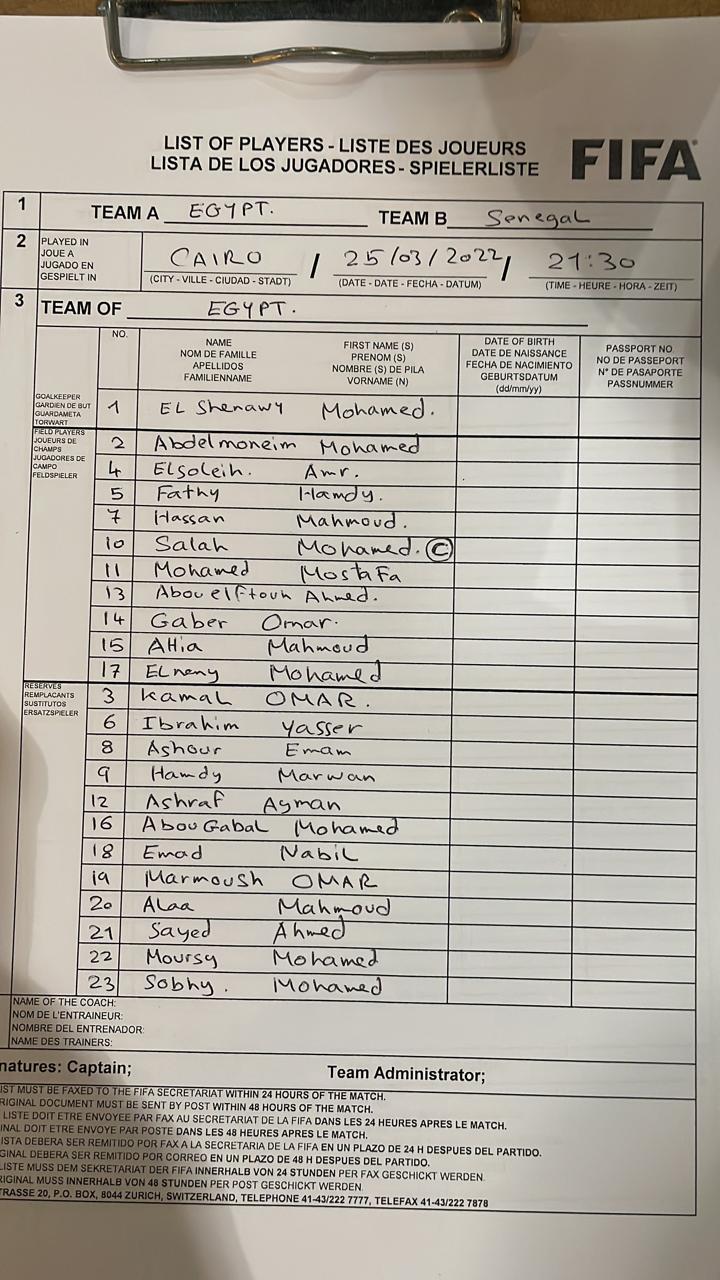 LIST OF PLAYERS - LISTE DES JOUEURS
LISTA DE LOS JUGADORES - SPIELERLISTE
FIFA
1 TEAM A EGYPT. TEAM B Senegal
2 PLAYED IN
JOUE A
JUGADO EN
GESPIELT IN
CAIRO / 25/03/2022 / 21:30
(CITY - VILLE - CIUDAD - STADT) (DATE - DATE - FECHA - DATUM) (TIME - HEURE - HORA - ZEIT)
3 TEAM OF EGYPT.
NO.
NAME
NOM DE FAMILLE
APELLIDOS
FAMILIENNAME
FIRST NAME (S)
PRENOM (S)
NOMBRE (S) DE PILA
VORNAME (N)
DATE OF BIRTH
DATE DE NAISSANCE
FECHA DE NACIMIENTO
GEBURTSDATUM
(dd/mm/yy)
PASSPORT NO.
NO DE PASSEPORT
N° DE PASAPORTE
PASSNUMMER
GOALKEEPER
GARDIEN DE BUT
GUARDAMETA
TORWART
1 EL Shenawy Mohamed.
FIELD PLAYERS
JOUEURS DE
CHAMPS
JUGADORES DE
CAMPO
FELDSPIELER
2 Abdelmoneim Mohamed
4 Elsoleih. Amr.
5 Fathy Hamdy.
7 Hassan Mahmoud.
10 Salah Mohamed. C
11 Mohamed MostaFa
13 Abouelftouh Ahmed.
14 Gaber Omar.
15 AHia Mahmoud
17 ELneny Mohamed
RESERVES
REMPLACANTS
SUSTITUTOS
ERSATZSPIELER
3 Kamal OMAR.
6 Ibrahim yasser
8 Ashour Emam
9 Hamdy Marwan
12 Ashraf Ayman
16 Abou Gabal Mohamed
18 Emad Nabil
19 Marmoush OMAR
20 Alaa Mahmoud
21 Sayed Ahmed
22 Moursy Mohamed
23 Sobhy. Mohamed
NAME OF THE COACH:
NOM DE L'ENTRAINEUR:
NOMBRE DEL ENTRENADOR:
NAME DES TRAINERS:
natures: Captain; Team Administrator;
IST MUST BE FAXED TO THE FIFA SECRETARIAT WITHIN 24 HOURS OF THE MATCH.
RIGINAL DOCUMENT MUST BE SENT BY POST WITHIN 48 HOURS OF THE MATCH.
LISTE DOIT ETRE ENVOYEE PAR FAX AU SECRETARIAT DE LA FIFA DANS LES 24 HEURES APRES LE MATCH.
INAL DOIT ETRE ENVOYE PAR POSTE DANS LES 48 HEURES APRES LE MATCH.
ISTA DEBERA SER REMITIDO POR FAX A LA SECRETARIA DE LA FIFA EN UN PLAZO DE 24 H DESPUES DEL PARTIDO.
GINAL DEBERA SER REMITIDO POR CORREO EN UN PLAZO DE 48 H DESPUES DEL PARTIDO.
LISTE MUSS DEM SEKRETARIAT DER FIFA INNERHALB VON 24 STUNDEN PER FAX GESCHICKT WERDEN.
RIGINAL MUSS INNERHALB VON 48 STUNDEN PER POST GESCHICKT WERDEN.
TRASSE 20, P.O. BOX, 8044 ZURICH, SWITZERLAND, TELEPHONE 41-43/222 7777, TELEFAX 41-43/222 7878